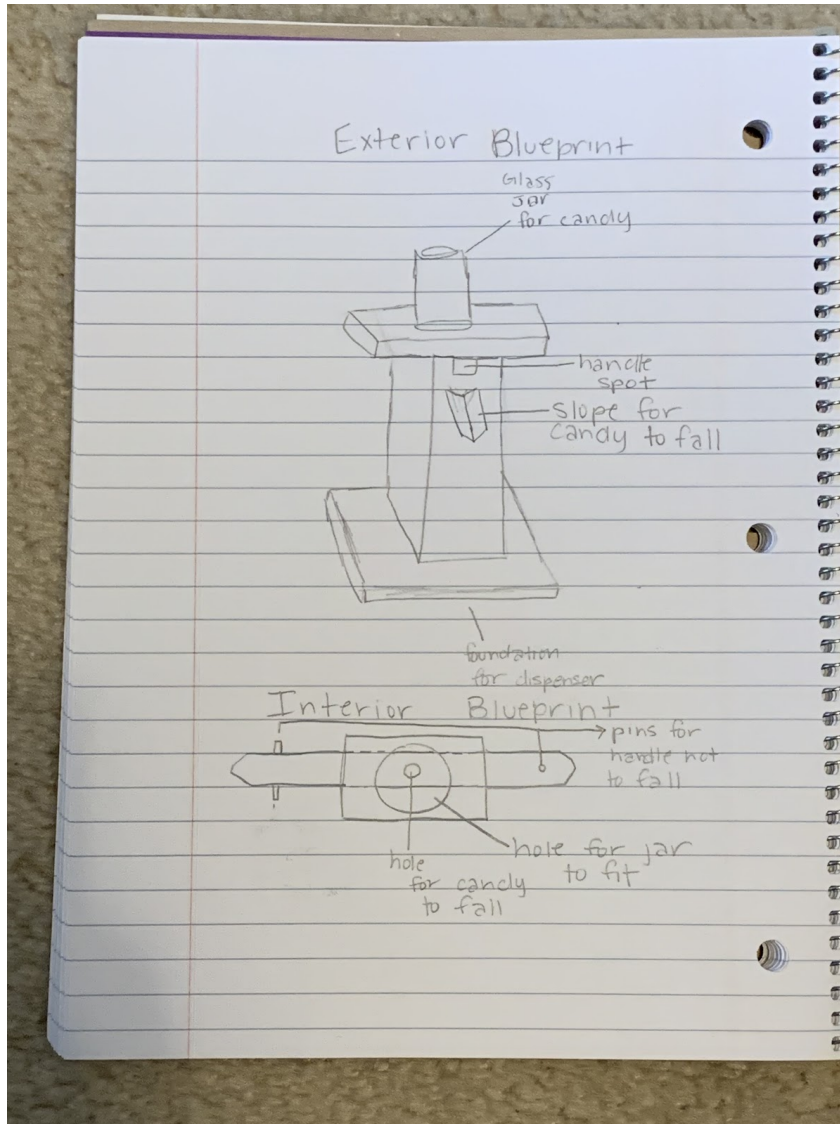 Exterior Blueprint
Glass
Jar
for candy
handle
spot
slope for
candy to fall
foundation
for dispenser
Interior Blueprint
pins for
handle not
to fall
hole for jar
to fit
hole
for candy
to fall